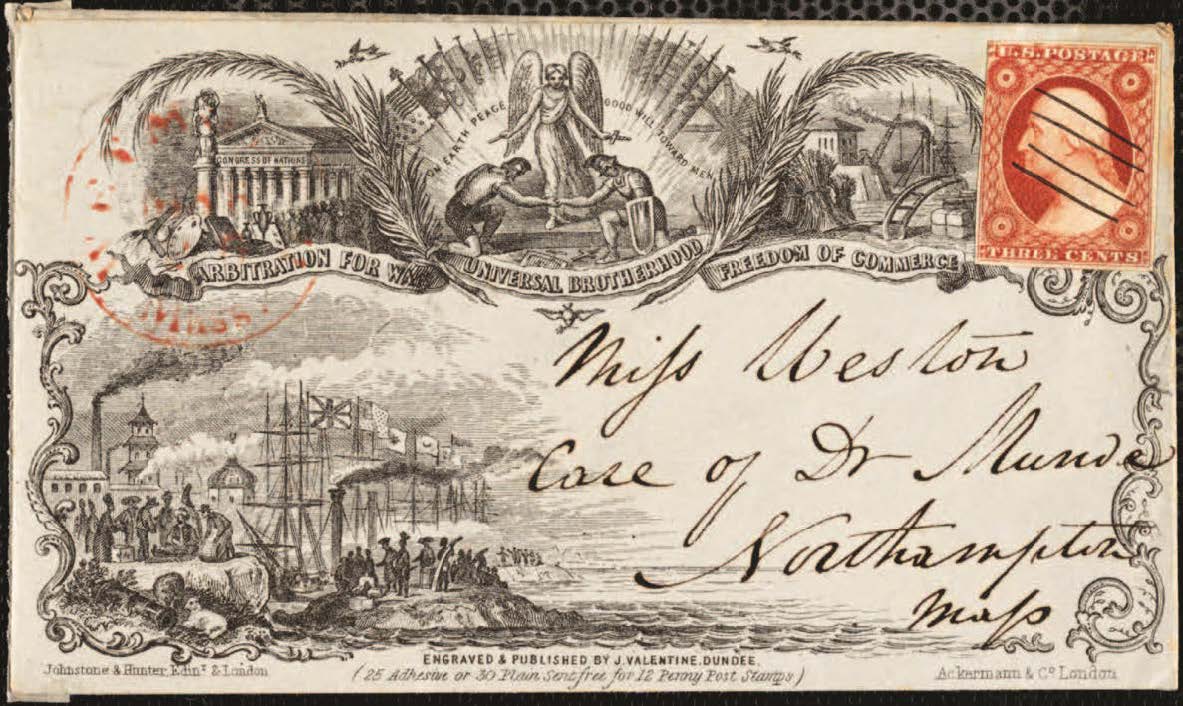 U.S. POSTAGE
THREE CENTS
ON EARTH PEACE GOOD WILL TOWARD MEN
CONGRESS OF NATIONS
ARBITRATION FOR WAR
UNIVERSAL BROTHERHOOD
FREEDOM OF COMMERCE
MASS.
Miſs Weston
Care of Dr Munde
Northampton
Maſs
ENGRAVED & PUBLISHED BY J. VALENTINE, DUNDEE.
(25 Adhesive or 30 Plain Sent free for 12 Penny Post Stamps)
Johnstone & Hunter, Edinr. & London
Ackermann & Co. London